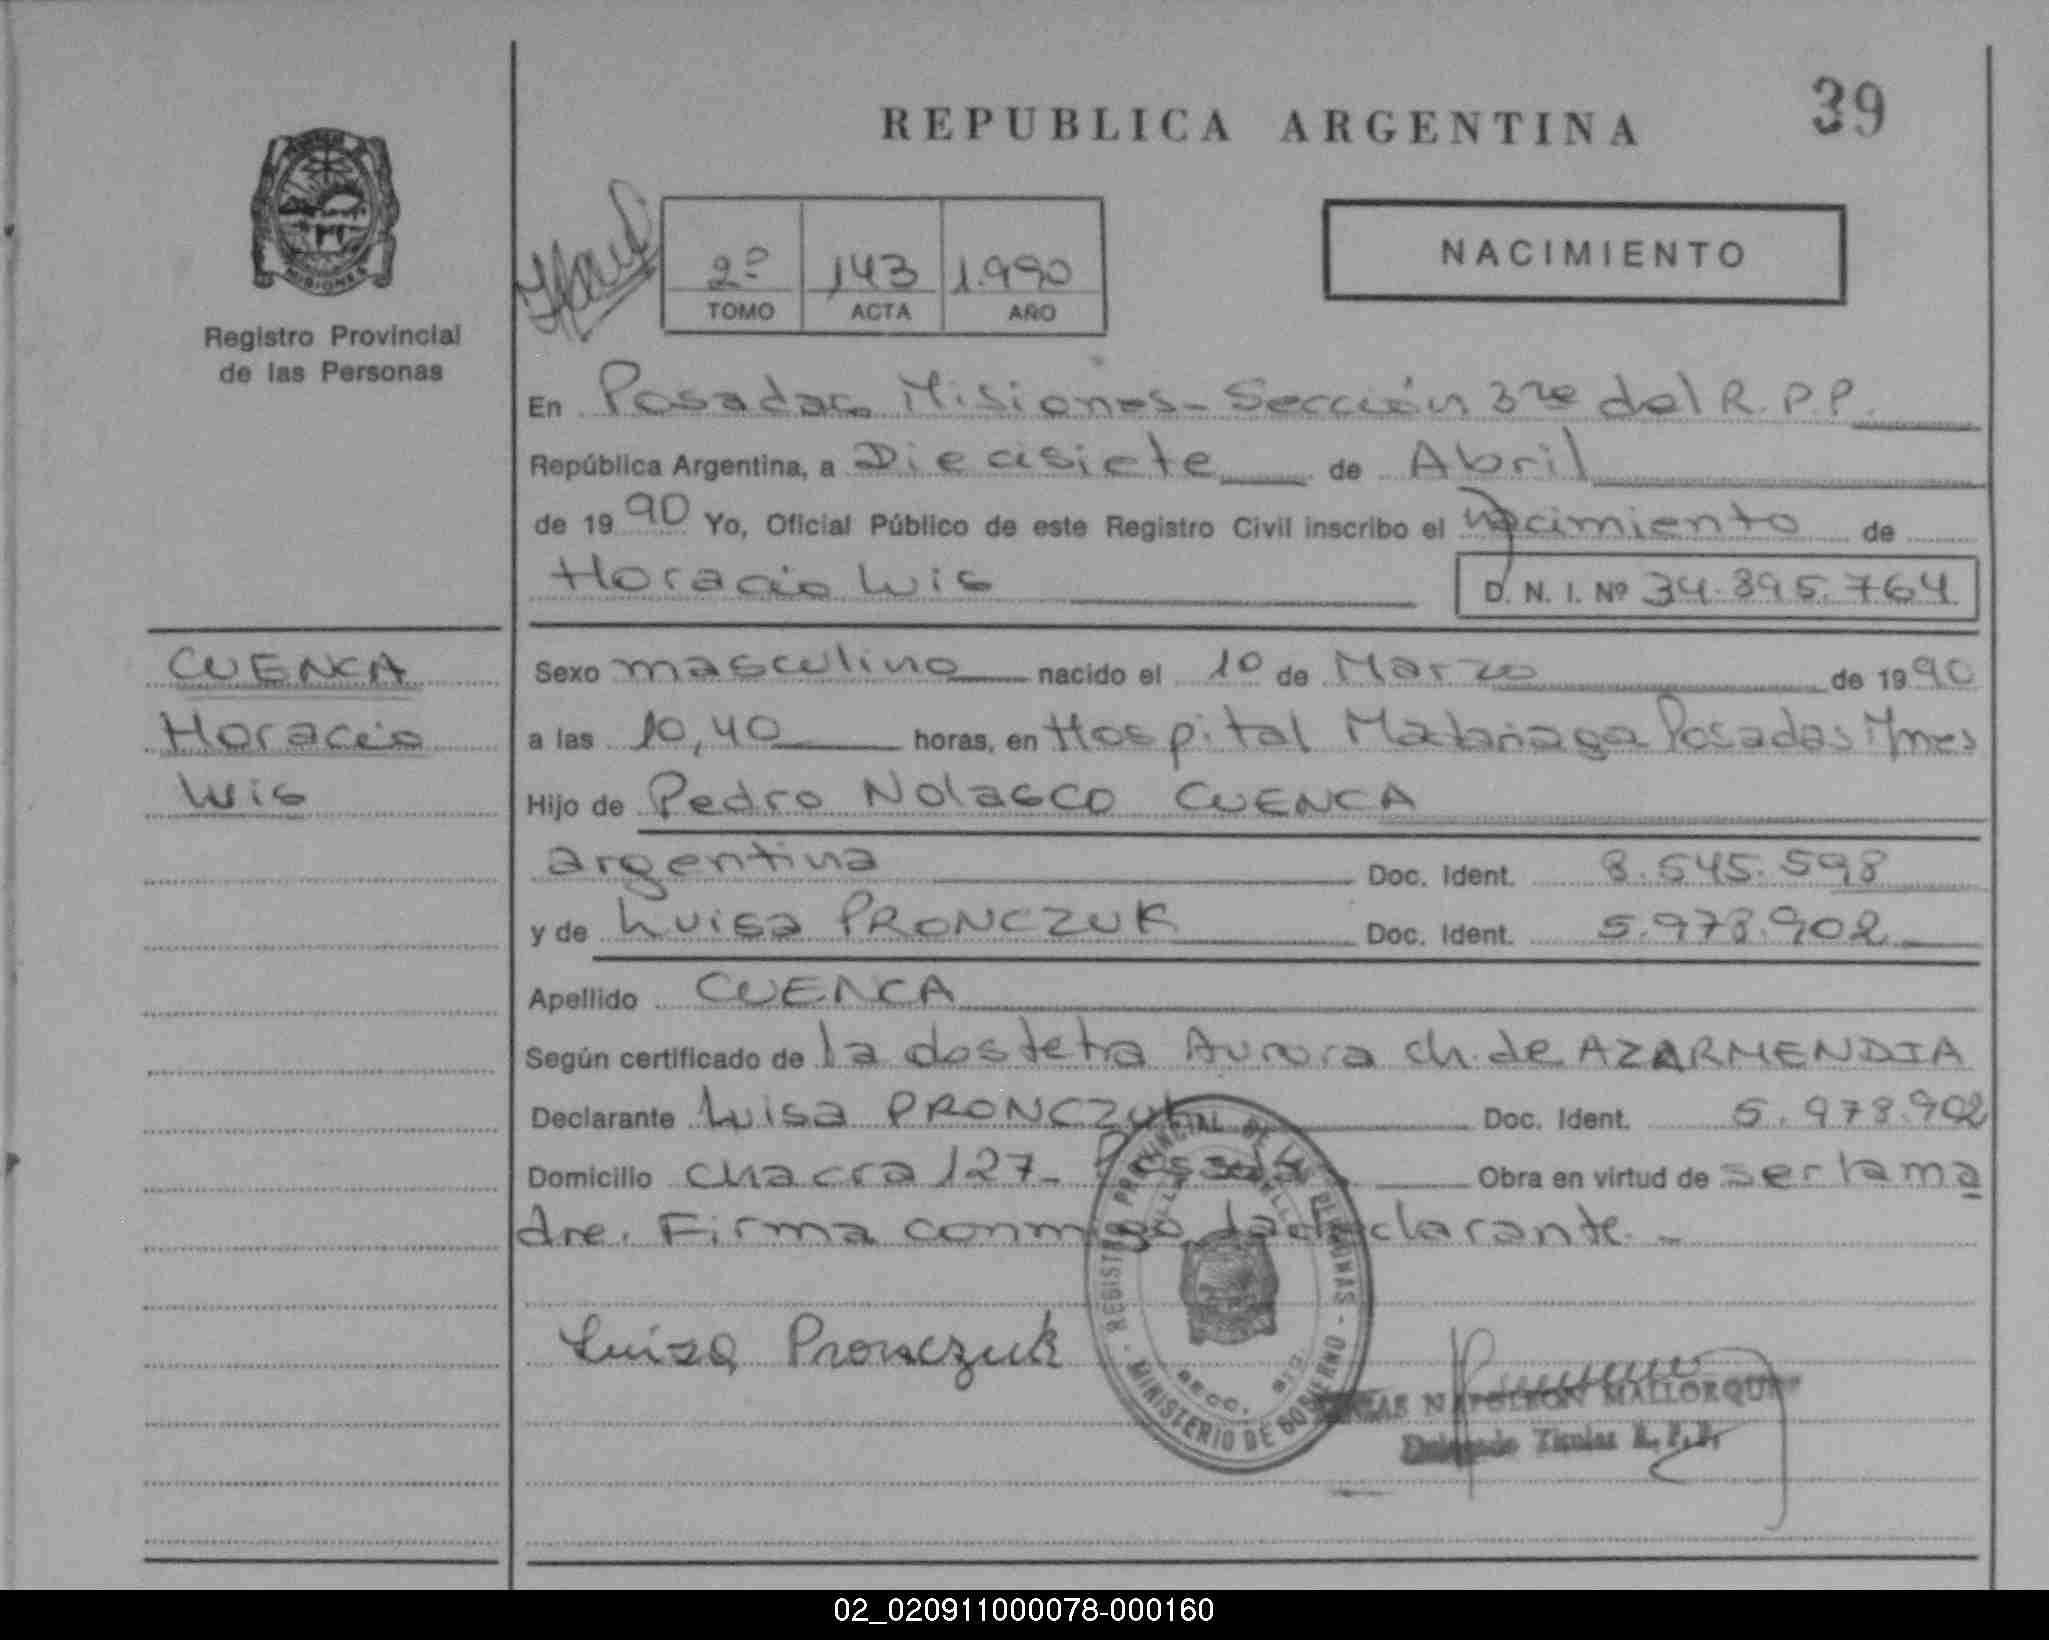 REPUBLICA ARGENTINA
39
MISIONES
Registro Provincial
de las Personas
2º 143 1.990
TOMO ACTA AÑO
NACIMIENTO
En Posadas Misiones - Sección 3ra del R.P.P.
República Argentina, a Diecisiete de Abril
de 1990 Yo, Oficial Público de este Registro Civil inscribo el nacimiento de
Horacio Luis D. N. I. Nº 34.895.764
CUENCA
Horacio
Luis
Sexo masculino nacido el 10 de Marzo de 1990
a las 10,40 horas, en Hospital Madariaga Posadas Mnes
Hijo de Pedro Nolasco CUENCA
argentina Doc. Ident. 8.545.598
y de Luisa PRONCZUK Doc. Ident. 5.978.902
Apellido CUENCA
Según certificado de la obstetra Aurora Ch. de AZARMENDIA
Declarante Luisa PRONCZUK Doc. Ident. 5.978.902
Domicilio chacra 127- Posadas Obra en virtud de ser la ma
dre. Firma conmigo la declarante.-
Luisa Pronczuk
REGISTRO PROVINCIAL DE LAS PERSONAS
- MINISTERIO DE GOBIERNO -
SECC. 3ra
NAPOLEON MALLORQUIN
Delegado Titular R.P.P.
02_020911000078-000160